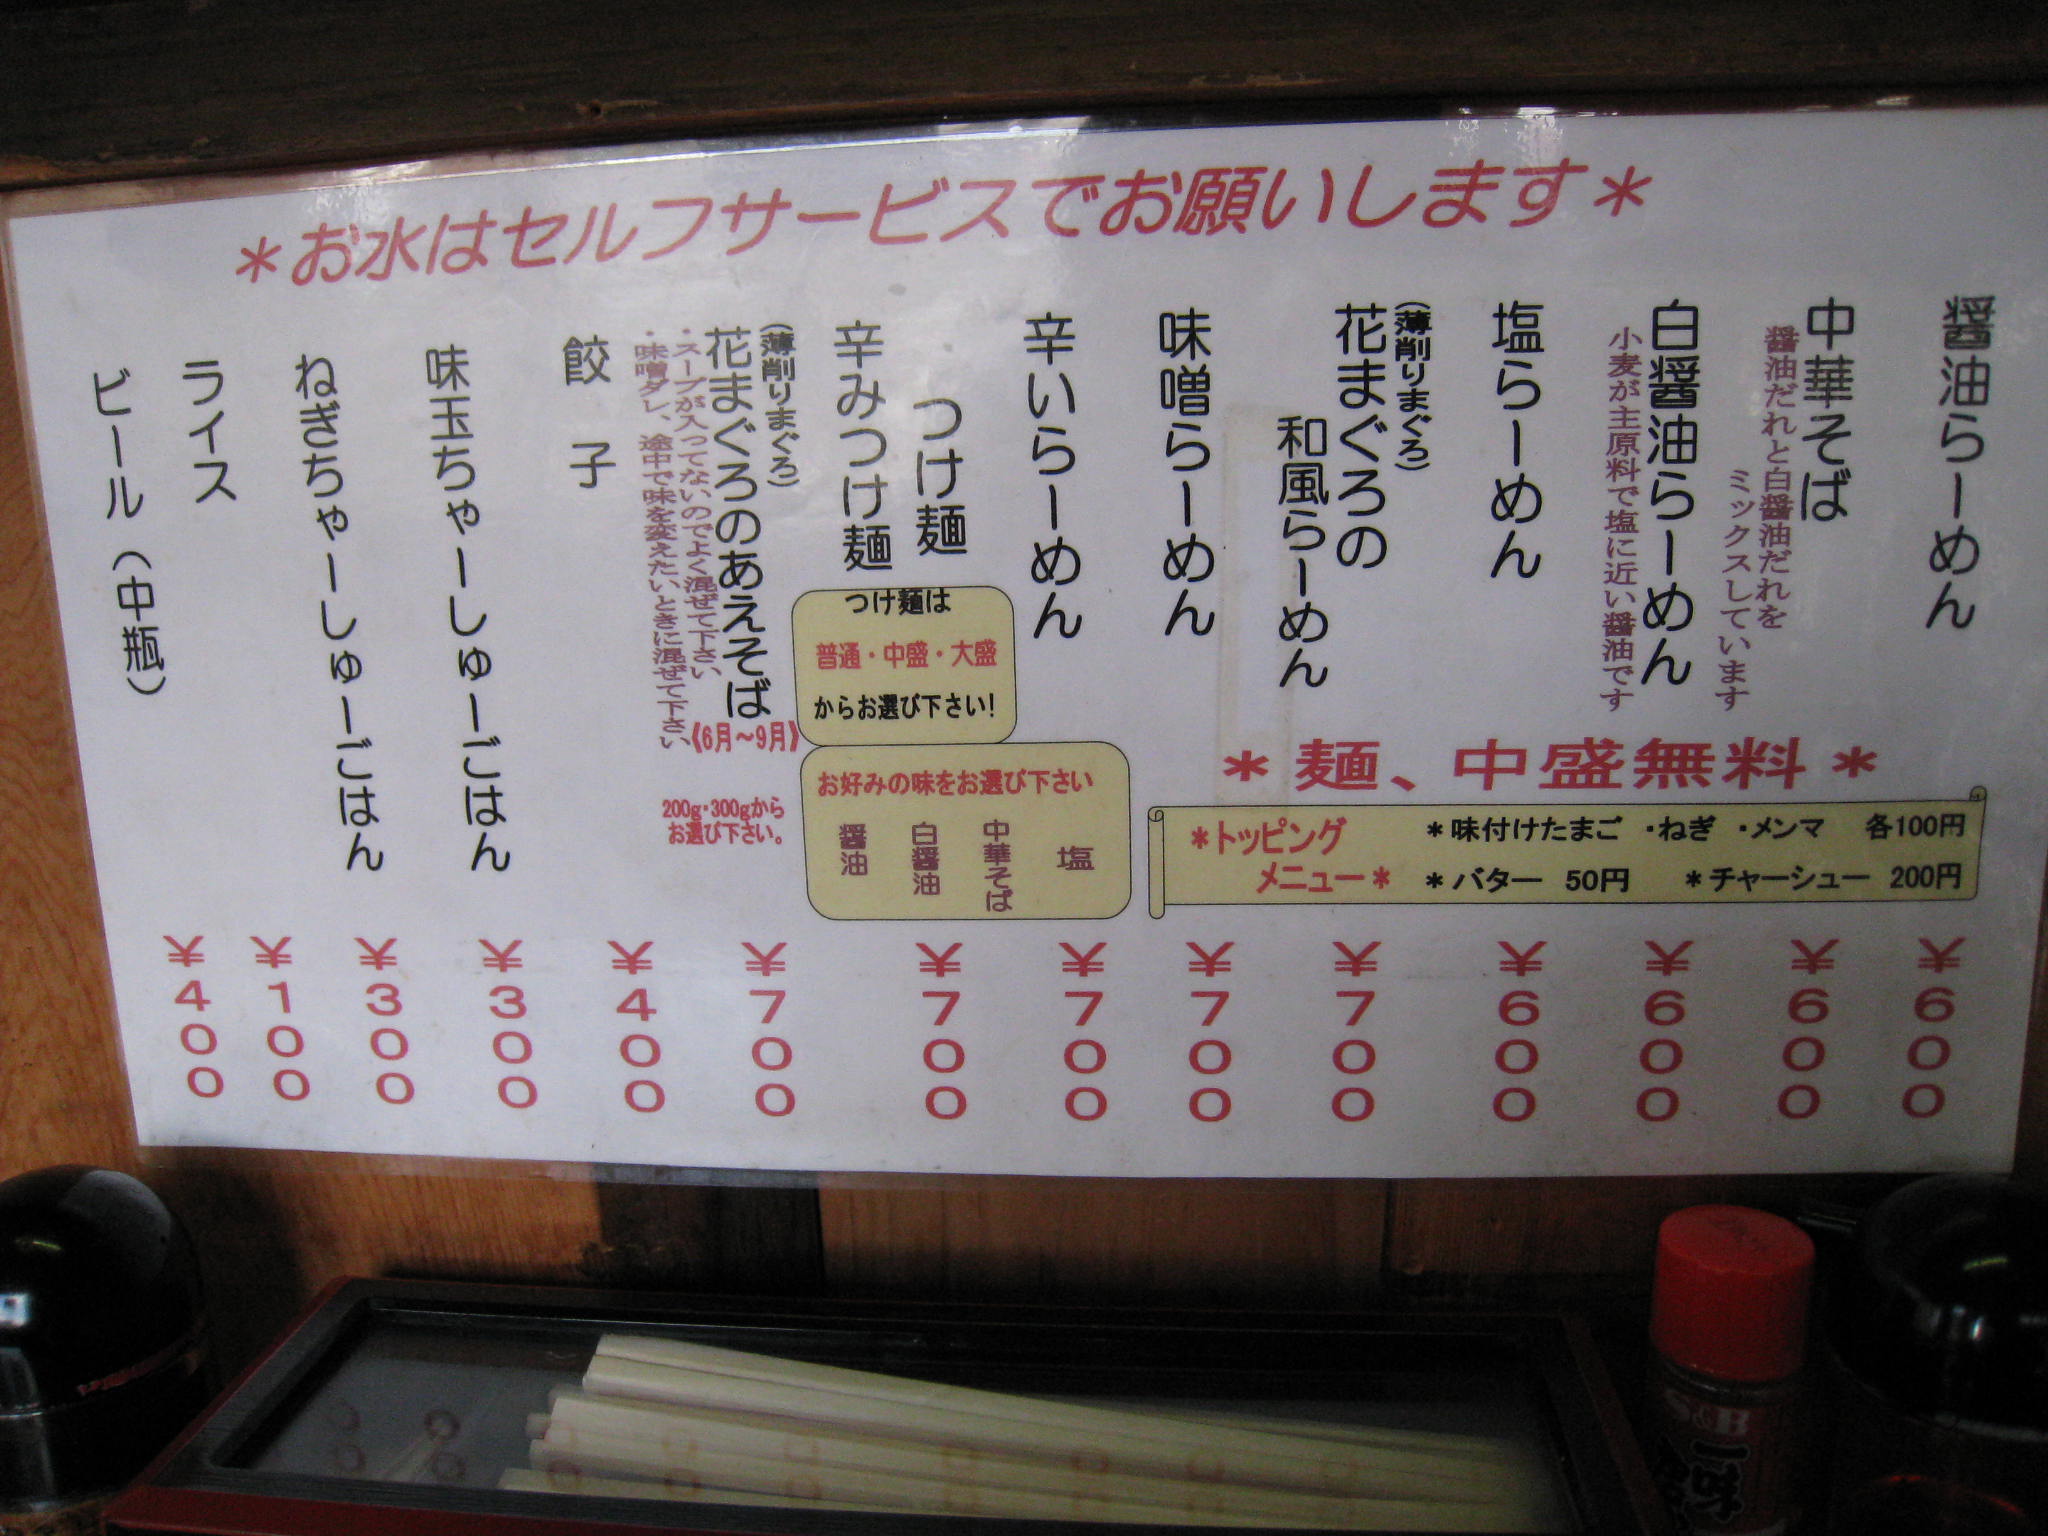 ＊お水はセルフサービスでお願いします＊
醤油らーめん
￥600
中華そば
醤油だれと白醤油だれを
ミックスしています
￥600
白醤油らーめん
小麦が主原料で塩に近い醤油です
￥600
塩らーめん
￥600
(薄削りまぐろ)
花まぐろの
和風らーめん
￥700
味噌らーめん
￥700
辛いらーめん
￥700
つけ麺
辛みつけ麺
￥700
つけ麺は
普通・中盛・大盛
からお選び下さい!
お好みの味をお選び下さい
塩
中華そば
白醤油
醤油
(薄削りまぐろ)
花まぐろのあえそば
《6月〜9月》
・スープが入ってないのでよく混ぜて下さい
・味噌ダレ、途中で味を変えたいときに混ぜて下さい
200g・300gから
お選び下さい。
￥700
餃子
￥400
味玉ちゃーしゅーごはん
￥300
ねぎちゃーしゅーごはん
￥300
ライス
￥100
ビール（中瓶）
￥400
＊麺、中盛無料＊
＊トッピング
メニュー＊
＊味付けたまご ・ねぎ ・メンマ 各100円
＊バター 50円 ＊チャーシュー 200円
S&B
一味